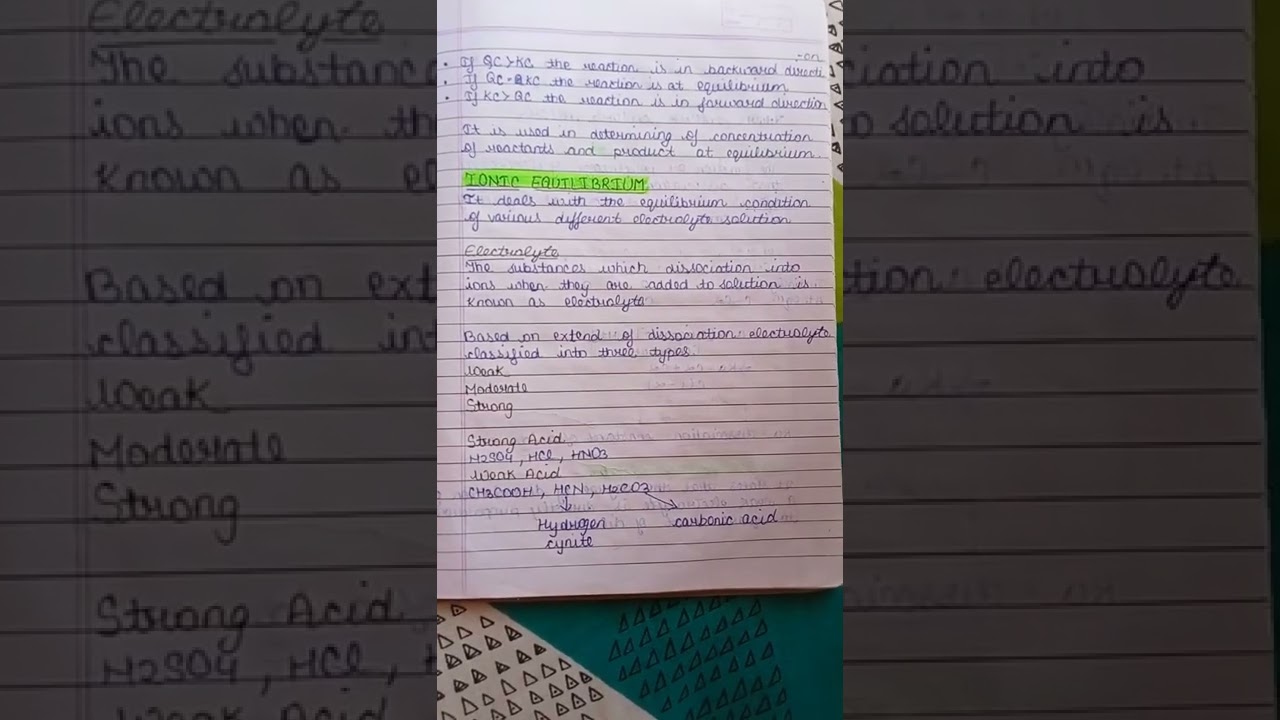 -on
• If QC>KC the reaction is in backward directi
• If QC=KC the reaction is at equilibrium.
• If KC>QC the reaction is in forward direction
It is used in determining of concentration
of reactants and product at equilibrium.
IONIC EQUILIBRIUM
It deals with the equilibrium condition
of various different electrolyte solution
Electrolyte
The substances which dissociation into
ions when they are added to solution is.
known as electrolyte
Based on extend of dissociation electrolyte
classified into three types.
Weak
Moderate
Strong
Strong Acid
H2SO4, HCl, HNO3
Weak Acid
CH3COOH, HCN, H2CO3
Hydrogen carbonic acid
cynite